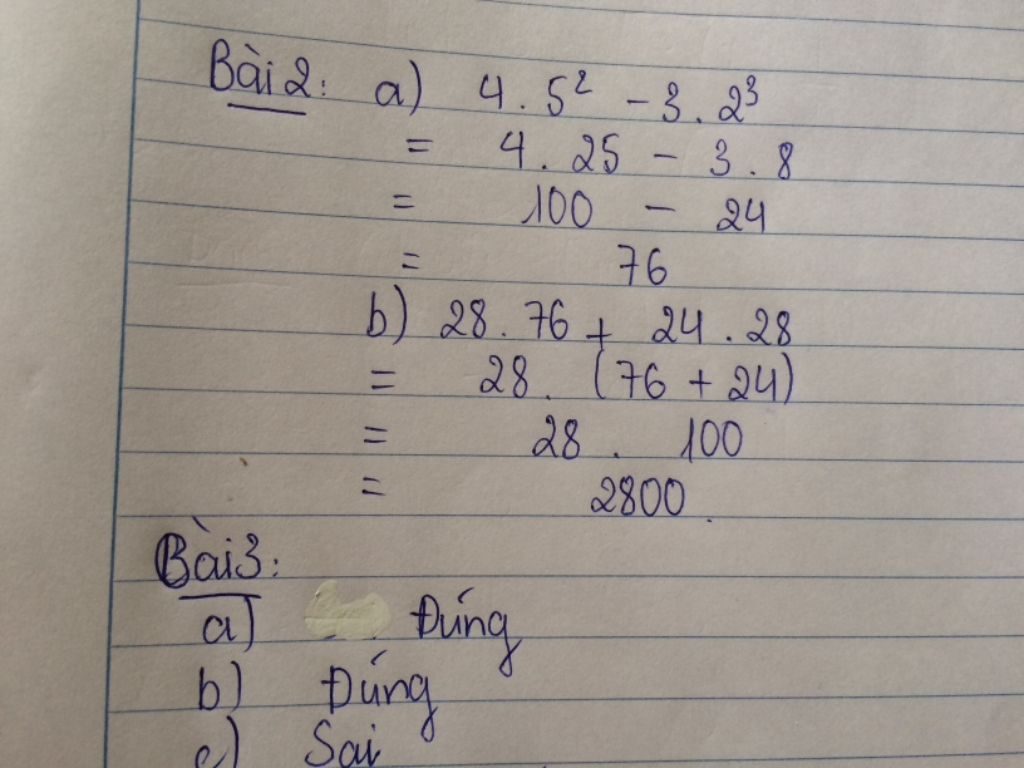 Bài 2: a) 4 . 5² - 3 . 2³
= 4 . 25 - 3 . 8
= 100 - 24
= 76
b) 28 . 76 + 24 . 28
= 28 . (76 + 24)
= 28 . 100
= 2800.
Bài 3:
a) Đúng
b) Đúng
c) Sai